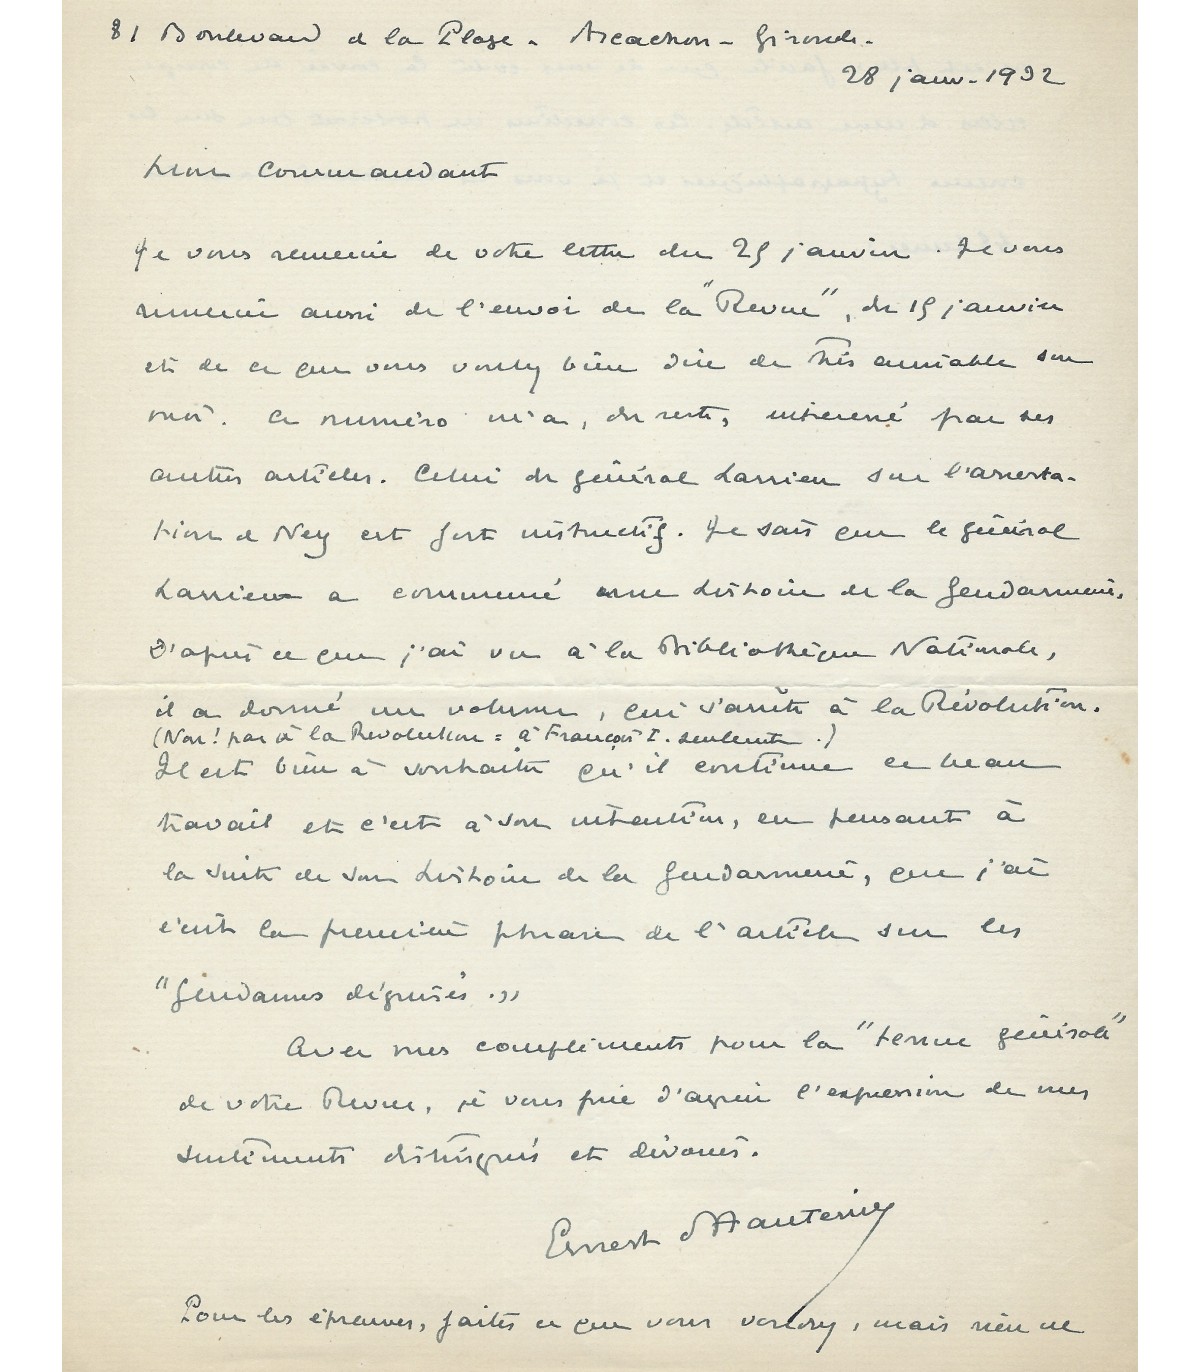 81 Boulevard de la Plage - Arcachon - Gironde -
28 janv - 1932
Mon Commandant
Je vous remercie de votre lettre du 25 janvier. Je vous
remercie aussi de l'envoi de la "Revue", du 15 janvier
et de ce que vous voulez bien dire de très aimable sur
moi. Ce numéro m'a, du reste, intéressé par ses
autres articles. Celui du général Larrieu sur l'arresta-
tion de Ney est fort instructif. Je sais que le général
Larrieu a commencé une Histoire de la Gendarmerie.
D'après ce que j'ai vu à la Bibliothèque Nationale,
il a donné un volume, qui s'arrête à la Révolution.
(Non! pas à la Révolution = à François I. seulement.)
Il est bien à souhaiter qu'il continue ce beau
travail et c'est à son intention, en pensant à
la suite de son Histoire de la Gendarmerie, que j'ai
écrit la première phrase de l'article sur les
"Gendarmes déguisés."
Avec mes compliments pour la "tenue générale"
de votre Revue, je vous prie d'agréer l'expression de mes
sentiments distingués et dévoués.
Ernest d'Hauterive
Pour les épreuves, faites ce que vous voudrez, mais rien ne